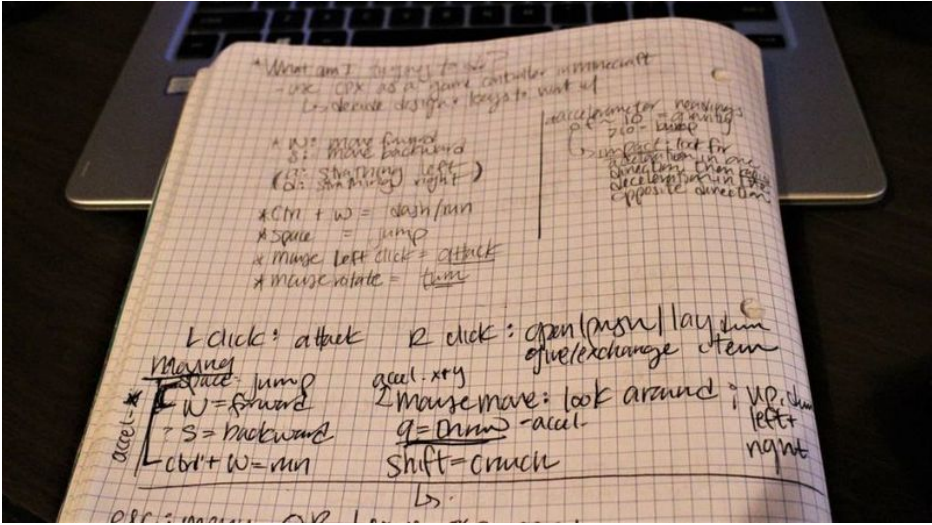 * What am I trying to do?
- use CPX as a game controller in minecraft
↳ decide design + keys to
* W: move forward
S: move backward
(a: strafing left)
(d: strafing right)
* Ctrl + W = dash/run
* space = jump
* mouse left click = attack
* mouse rotate = turn
accelerometer readings
~ 10 = gravity
>10 - bump
↳ impact: look for
acceleration in one
direction then
deceleration in
opposite direction
L click: attack
R click: open/push/lay dwn
give/exchange item
moving
space = jump
W = forward
? S = backward
ctrl + W = run
accel - *
accel. x+y
mouse move: look around ; up, dwn
left +
right
q = throw - accel.
shift = crouch
↳
esc: menu OR